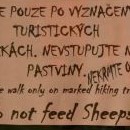 E POUZE PO VYZNAČENÝ
TURISTICKÝCH
KÁCH. NEVSTUPUJTE N
PASTVINY.
NEKRMTE O
e walk only on marked hiking tra
o not feed Sheeps